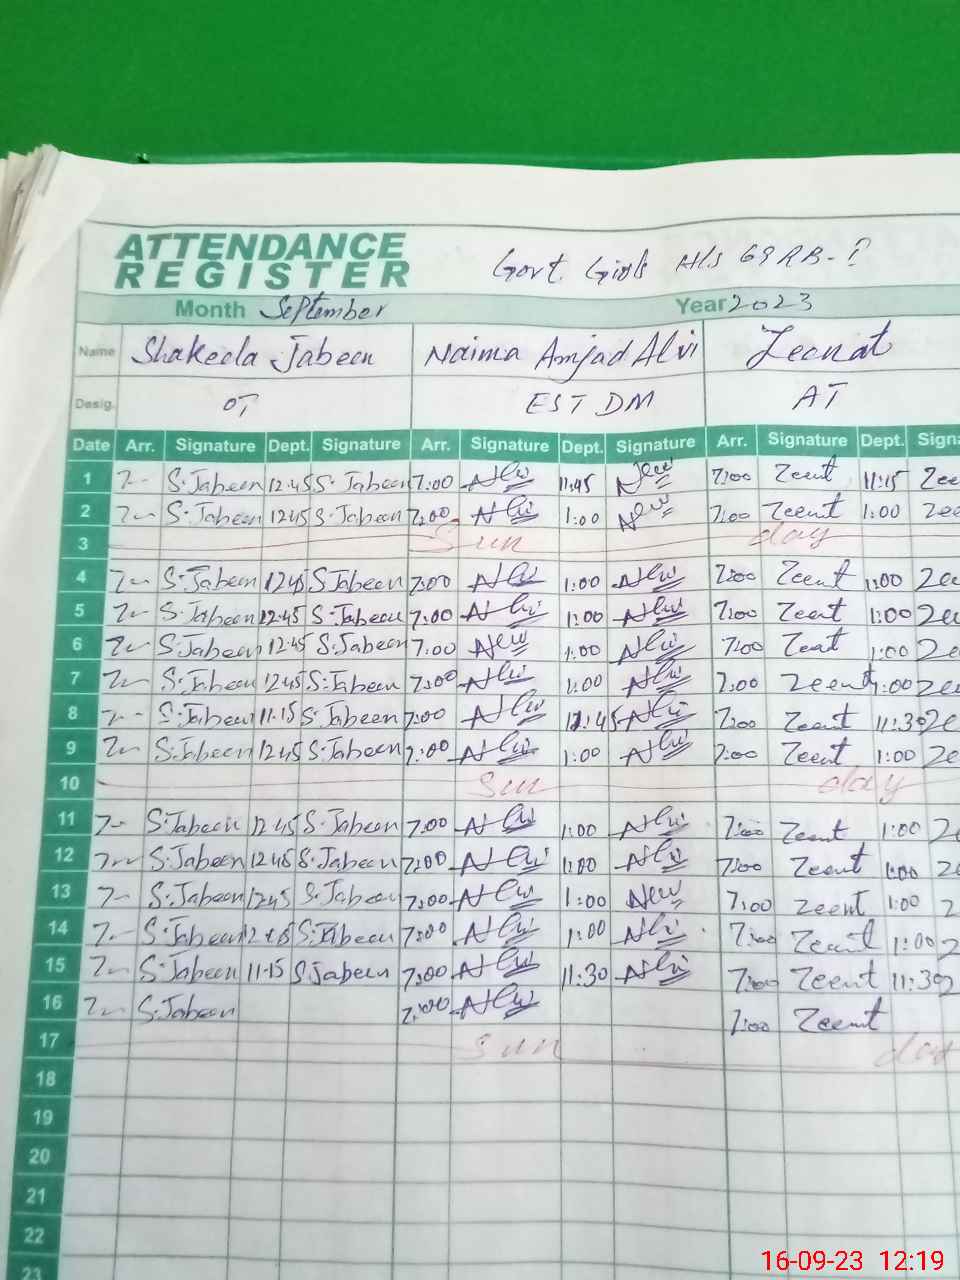 ATTENDANCE
REGISTER
Govt. Girls H/S 69 RB-
Month September Year 2023
Name Shakeela Jabeen Naima Amjad Alvi Zeenat
Desig. OT EST DM AT
Date Arr. Signature Dept. Signature Arr. Signature Dept. Signature Arr. Signature Dept. Signa
1 7-- S.Jabeen 12.45 S.Jabeen 7:00 11:45 7:00 Zeent 11:15 Zee
2 7-- S.Jabeen 12.45 S.Jabeen 7:00 1:00 7:00 Zeent 1:00 Zee
3 Sun day
4 7-- S.Jabeen 12.45 S.Jabeen 7:00 1:00 7:00 Zeent 1:00 Zee
5 7-- S.Jabeen 12.45 S.Jabeen 7:00 1:00 7:00 Zeent 1:00 Zee
6 7-- S.Jabeen 12.45 S.Jabeen 7:00 1:00 7:00 Zeat 1:00 Ze
7 7-- S.Jabeen 12.45 S.Jabeen 7:00 1:00 7:00 Zeent 1:00 Zee
8 7-- S.Jabeen 11.15 S.Jabeen 7:00 7:00 Zeent 11:30 Ze
9 7-- S.Jabeen 12.45 S.Jabeen 7:00 1:00 7:00 Zeent 1:00 Ze
10 Sun day
11 7-- S.Jabeen 12.45 S.Jabeen 7:00 1:00 7:00 Zeent 1:00
12 7-- S.Jabeen 12.45 S.Jabeen 7:00 1:00 7:00 Zeent 1:00
13 7-- S.Jabeen 12.45 S.Jabeen 7:00 1:00 7:00 Zeent 1:00
14 7-- S.Jabeen 12.45 S.Jabeen 7:00 1:00 7:00 Zeent 1:00
15 7-- S.Jabeen 11.15 S.Jabeen 7:00 11:30 7:00 Zeent 11:30
16 7-- S.Jabeen 7:00 7:00 Zeent
17 Sun day
18
19
20
21
22
23
16-09-23 12:19